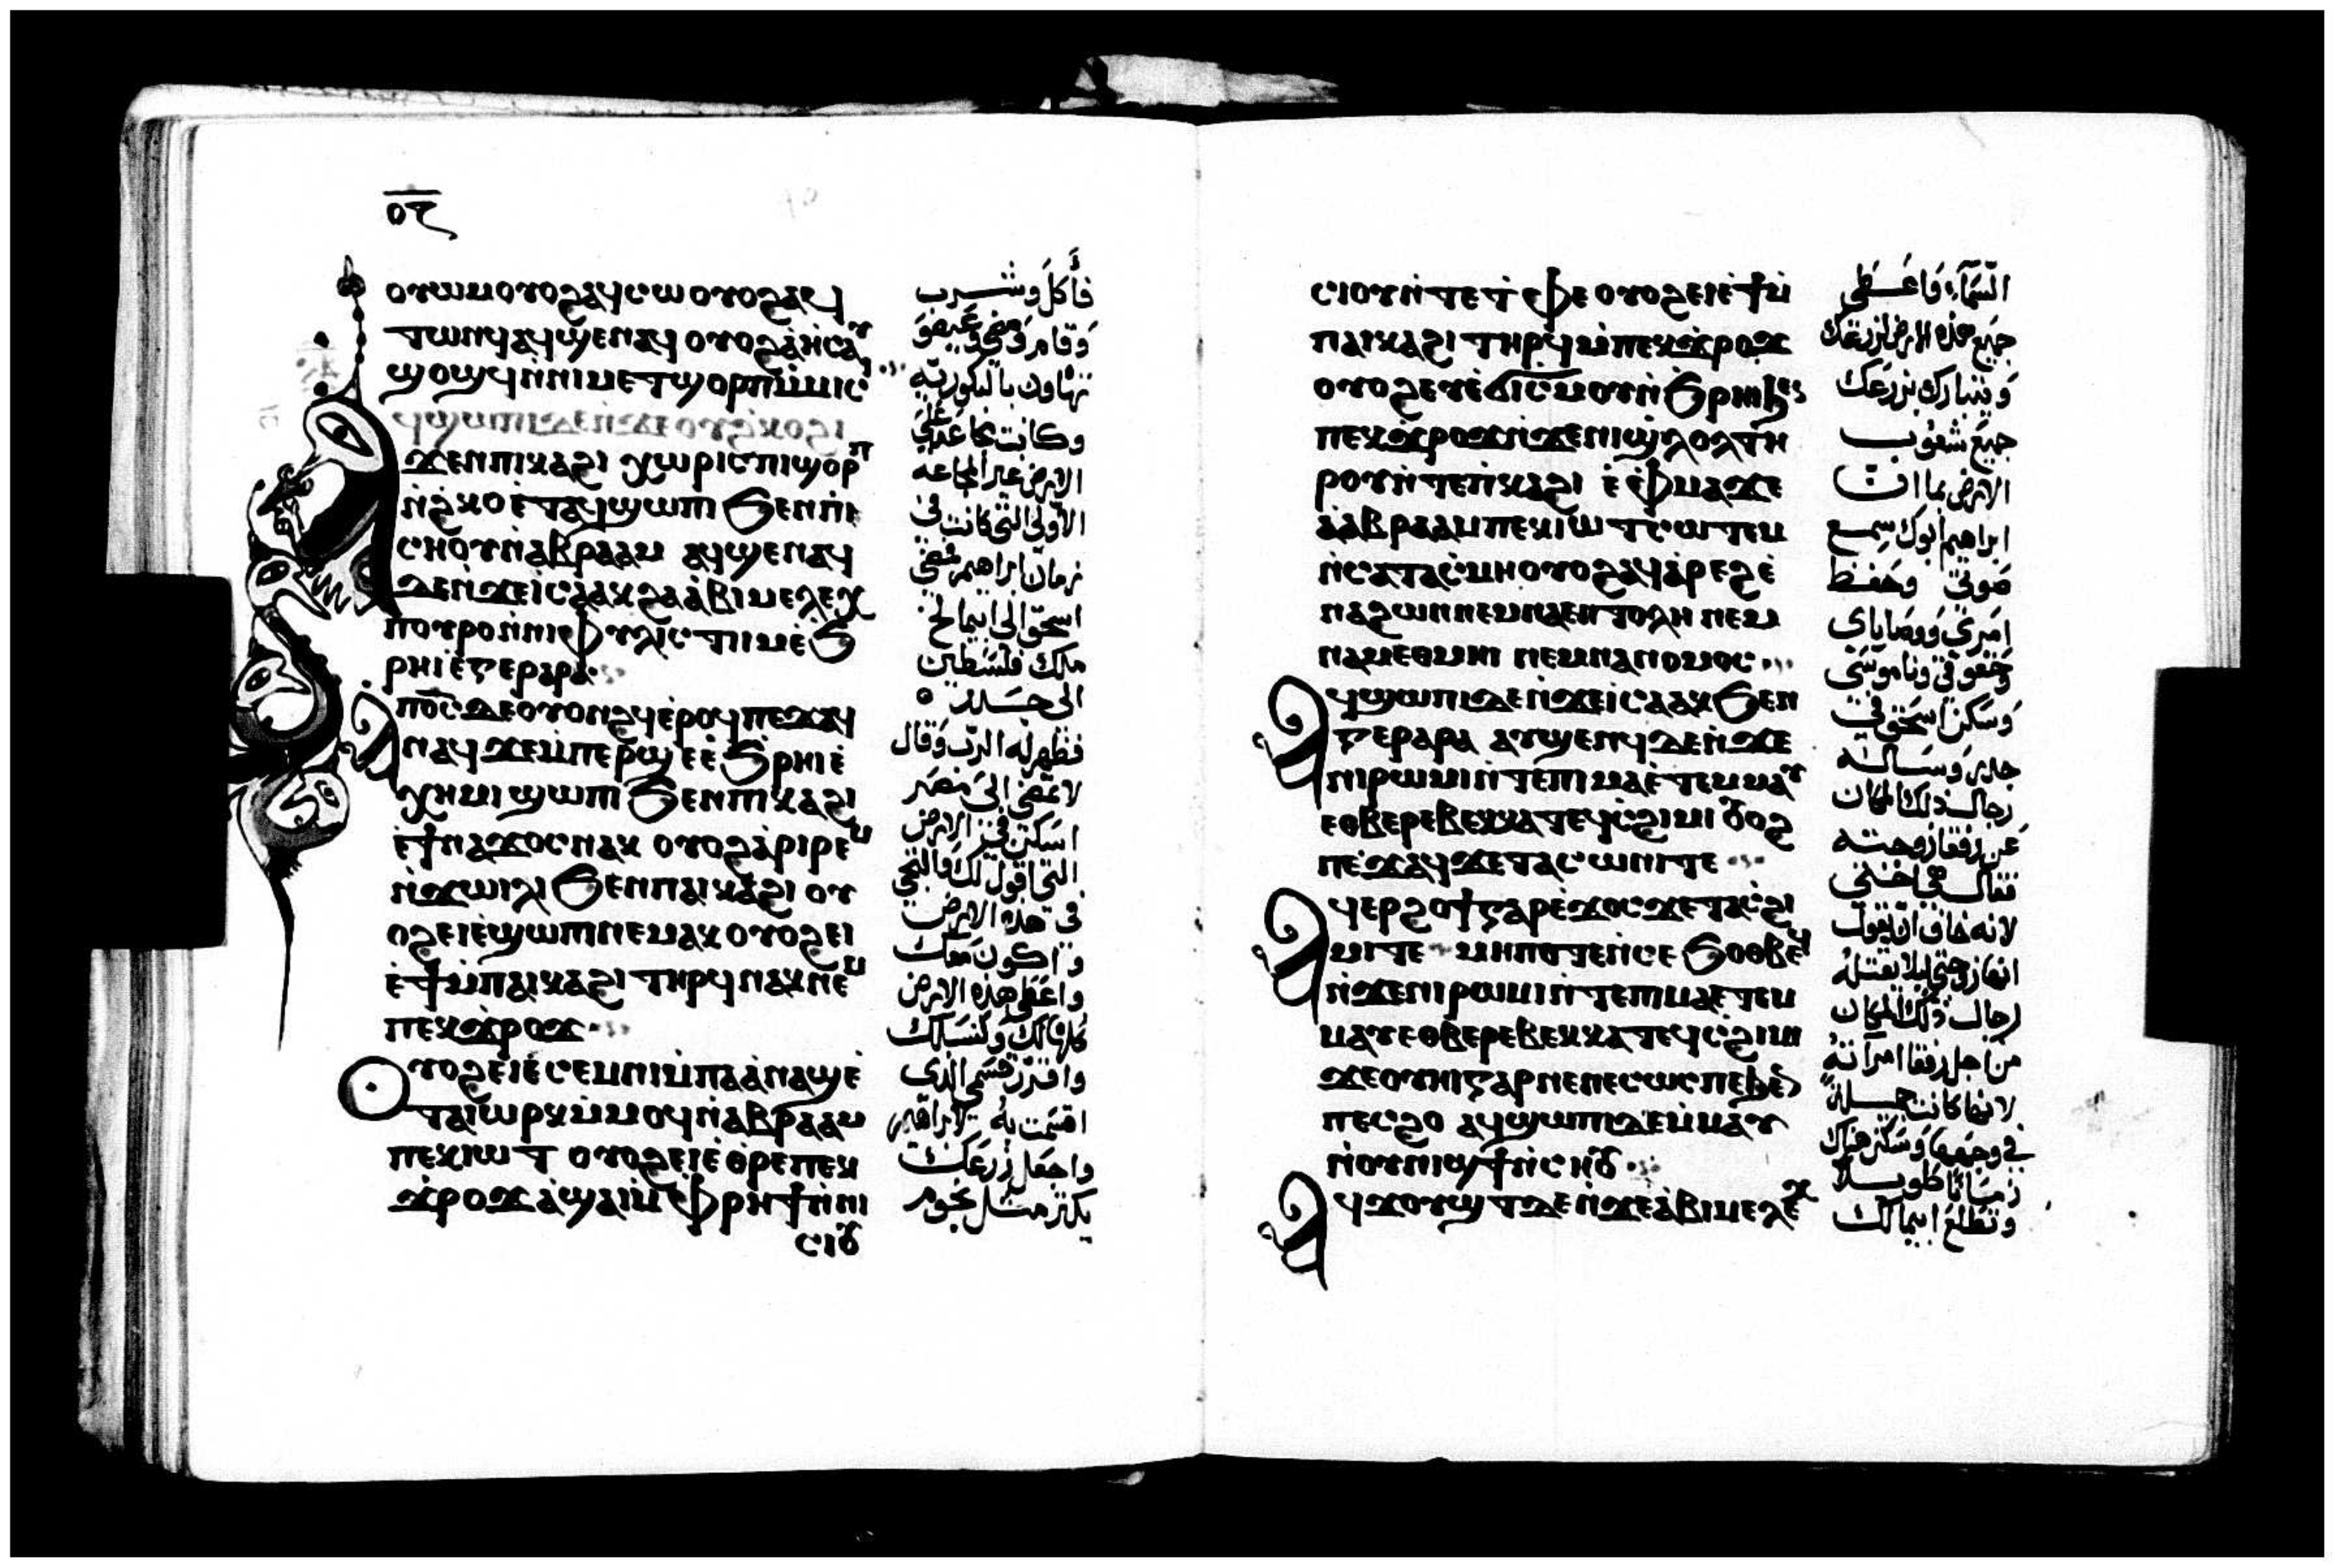 ⲟⲋ
ⲟⲩⲱⲙ ⲟⲩⲟϩ ⲁϥⲥⲱ ⲟⲩⲟϩ ⲁϥ
ⲧⲱⲛϥ ⲁϥϣⲉⲛⲁϥ ⲟⲩⲟϩ ⲁ̀ⲏⲥⲁⲩ
ϣⲟϣϥ ⲛ̀ⲛⲓⲙⲉⲧϣⲟⲣⲡ ⲙ̀ⲙⲓⲥⲓ
ⲟⲩϩⲕⲟ ⲇⲉ ⲁϥϣⲱⲡⲓ
ϩⲓϫⲉⲛ ⲡⲓⲕⲁϩⲓ ⲭⲱⲣⲓⲥ ⲡⲓϣⲟⲣⲡ
ⲛ̀ϩⲕⲟ ⲉ̀ⲧⲁϥϣⲱⲡⲓ ϧⲉⲛ ⲡⲓ
ⲥⲏⲟⲩ ⲛ̀ⲁⲃⲣⲁⲁⲙ ⲁϥϣⲉⲛⲁϥ
ⲇⲉ ⲛ̀ϫⲉ ⲓ̀ⲥⲁⲁⲕ ϩⲁ ⲁ̀ⲃⲓⲙⲉⲗⲉⲭ
ⲡⲟⲩⲣⲟ ⲛ̀ⲛⲓⲫⲩⲗⲓⲥⲧⲓⲙ ⲉ̀ϧ
ⲣⲏⲓ ⲉ̀ⲅⲉⲣⲁⲣⲁ
ⲁ̀ⲡⲟ̅ⲥ̅ ⲇⲉ ⲟⲩⲟⲛϩϥ ⲉ̀ⲣⲟϥ ⲡⲉϫⲁϥ
ⲛⲁϥ ϫⲉ ⲙ̀ⲡⲉⲣϣⲉ ⲉ̀ϧⲣⲏⲓ ⲉ̀
ⲭⲏⲙⲓ ϣⲱⲡⲓ ϧⲉⲛ ⲡⲓⲕⲁϩⲓ
ⲉ̀ϯⲛⲁϫⲟⲥ ⲛⲁⲕ ⲟⲩⲟϩ ⲁ̀ⲣⲓⲣⲉⲙ
ⲛ̀ϫⲱⲓⲗⲓ ϧⲉⲛ ⲡⲁⲓⲕⲁϩⲓ ⲟⲩ
ⲟϩ ⲉⲓⲉ̀ϣⲱⲡⲓ ⲛⲉⲙⲁⲕ ⲟⲩⲟϩ ⲉⲓ
ⲉ̀ϯ ⲙ̀ⲡⲁⲓⲕⲁϩⲓ ⲧⲏⲣϥ ⲛⲁⲕ ⲛⲉⲙ
ⲡⲉⲕϫⲣⲟϫ
ⲟⲩⲟϩ ⲉⲓⲉ̀ⲥⲉⲙⲛⲓ ⲙ̀ⲡⲁⲁ̀ⲛⲁϣ ⲉ̀
ⲧⲁⲓⲱⲣⲕ ⲙ̀ⲙⲟϥ ⲛ̀ⲁⲃⲣⲁⲁⲙ
ⲡⲉⲕⲓⲱⲧ ⲟⲩⲟϩ ⲉⲓⲉ̀ⲑⲣⲉ ⲡⲉⲕ
ϫⲣⲟϫ ⲁ̀ϣⲁⲓ ⲙ̀ⲫⲣⲏϯ ⲛ̀ⲛⲓ
ⲥⲓⲟⲩ
فأكل وشرب
وقام ومضى وعيصو
تهاون بالبكورية
وكانت مجاعة على
الارض غير المجاعة
الاولى التي كانت في
زمان ابراهيم فمضى
اسحق الى ابيمالخ
ملك فلسطين
الى جرار
فظهر له الرب وقال
لا تمضي الى مصر
اسكن في الارض
التي اقول لك والتجي
في هذه الارض
واكون معك
واعطي هذه الارض
كلها لك ولنسلك
واقرر قسمي الذي
اقسمت به لابراهيم
واجعل زرعك
يكثر مثل نجوم
ⲥⲓⲟⲩ ⲛ̀ⲧⲉ ⲧ̀ⲫⲉ ⲟⲩⲟϩ ⲉⲓⲉ̀ϯ ⲙ̀
ⲡⲁⲓⲕⲁϩⲓ ⲧⲏⲣϥ ⲙ̀ⲡⲉⲕϫⲣⲟϫ
ⲟⲩⲟϩ ⲉⲩⲉ̀ϭⲓⲥⲙⲟⲩ ⲛ̀ϧⲣⲏⲓ ϧⲉⲛ
ⲡⲉⲕϫⲣⲟϫ ⲛ̀ϫⲉ ⲛⲓϣⲗⲟⲗ ⲧⲏ
ⲣⲟⲩ ⲛ̀ⲧⲉ ⲛ̀ⲕⲁϩⲓ ⲉ̀ⲫⲙⲁ ϫⲉ
ⲁ̀ⲁⲃⲣⲁⲁⲙ ⲡⲉⲕⲓⲱⲧ ⲥⲱⲧⲉⲙ
ⲛ̀ⲥⲁ ⲧⲁⲥ̀ⲙⲏ ⲟⲩⲟϩ ⲁϥⲁ̀ⲣⲉϩ ⲉ̀
ⲛⲁϩⲱⲛ ⲛⲉⲙ ⲛⲁⲉⲛⲧⲟⲗⲏ ⲛⲉⲙ
ⲛⲁⲙⲉⲑⲙⲏⲓ ⲛⲉⲙ ⲛⲁⲛⲟⲙⲟⲥ
ⲁϥϣⲱⲡⲓ ⲇⲉ ⲛ̀ϫⲉ ⲓ̀ⲥⲁⲁⲕ ϧⲉⲛ
ⲅⲉⲣⲁⲣⲁ ⲁⲩϣⲉⲛϥ ⲇⲉ ⲛ̀ϫⲉ
ⲛⲓⲣⲱⲙⲓ ⲛ̀ⲧⲉ ⲡⲓⲙⲁ ⲉ̀ⲧⲉⲙⲙⲁⲩ
ⲉⲑⲃⲉ ⲣⲉⲃⲉⲕⲕⲁ ⲧⲉϥⲥ̀ϩⲓⲙⲓ ⲟⲩⲟϩ
ⲡⲉϫⲁϥ ϫⲉ ⲧⲁⲥⲱⲛⲓ ⲧⲉ
ⲁϥⲉⲣϩⲟϯ ⲅⲁⲣ ⲉ̀ϫⲟⲥ ϫⲉ ⲧⲁⲥ̀ϩⲓ
ⲙⲓ ⲧⲉ ⲙⲏⲡⲟⲧⲉ ⲛ̀ⲥⲉϧⲟⲑⲃⲉϥ
ⲛ̀ϫⲉ ⲛⲓⲣⲱⲙⲓ ⲛ̀ⲧⲉ ⲡⲓⲙⲁ ⲉ̀ⲧⲉⲙ
ⲙⲁⲩ ⲉⲑⲃⲉ ⲣⲉⲃⲉⲕⲕⲁ ⲧⲉϥⲥ̀ϩⲓⲙⲓ
ϫⲉ ⲟⲩⲏⲓ ⲅⲁⲣ ⲛⲉ ⲛⲉⲥⲱⲥ ⲡⲉ ϧⲉⲛ
ⲡⲉⲥϩⲟ ⲁϥϣⲱⲡⲓ ⲇⲉ ⲙ̀ⲙⲁⲩ
ⲛ̀ⲟⲩⲛⲓϣϯ ⲛ̀ⲥⲏⲟⲩ
ⲁϥϫⲟⲩϣⲧ ⲇⲉ ⲛ̀ϫⲉ ⲁ̀ⲃⲓⲙⲉⲗⲉⲭ
السماء واعطي
جميع هذه الارض لزرعك
ويتبارك بزرعك
جميع شعوب
الارض بما ان
ابراهيم ابوك سمع
صوتي وحفظ
امري ووصاياي
وحقوقي وناموسي
وسكن اسحق في
جرار وساله
رجال ذلك المكان
عن رفقا زوجته
فقال هي اختي
لانه خاف ان يقول
انها زوجتي ليلا يقتله
رجال ذلك المكان
من اجل رفقا امراته
لانها كانت جميلة
في وجهها وسكن هناك
زمانا طويلا
وتطلع ابيمالك